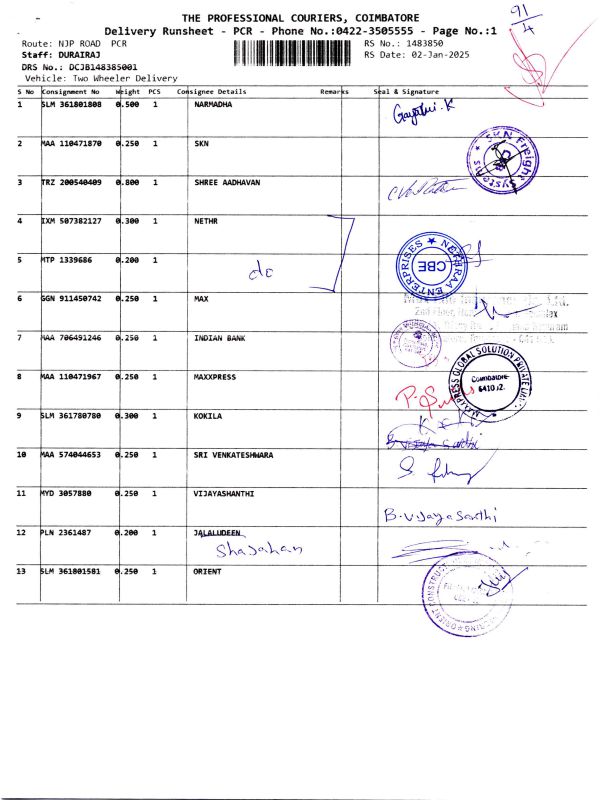 THE PROFESSIONAL COURIERS, COIMBATORE
Delivery Runsheet - PCR - Phone No.:0422-3505555 - Page No.:1
91
4
Route: NJP ROAD PCR
RS No.: 1483850
Staff: DURAIRAJ
RS Date: 02-Jan-2025
DRS No.: DCJB148385001
Vehicle: Two Wheeler Delivery
S No Consignment No Weight PCS Consignee Details Remarks Seal & Signature
1 SLM 361801808 0.500 1 NARMADHA
Gayathri.K
2 MAA 110471870 0.250 1 SKN
SKN Freight Systems
3 TRZ 200540409 0.800 1 SHREE AADHAVAN
4 IXM 507382127 0.300 1 NETHR
5 MTP 1339686 0.200 1
do
NETHRAA ENTERPRISES
CBE
6 GGN 911450742 0.250 1 MAX
7 MAA 706491246 0.250 1 INDIAN BANK
8 MAA 110471967 0.250 1 MAXXPRESS
MAXXPRESS GLOBAL SOLUTION PRIVATE LIMITED
Coimbatore
641012.
9 SLM 361780780 0.300 1 KOKILA
10 MAA 574044653 0.250 1 SRI VENKATESHWARA
11 MYD 3057880 0.250 1 VIJAYASHANTHI
B.Vijayasanthi
12 PLN 2361487 0.200 1 JALALUDEEN
Shajahan
13 SLM 361801581 0.250 1 ORIENT
ORIENT CONSTRUCT